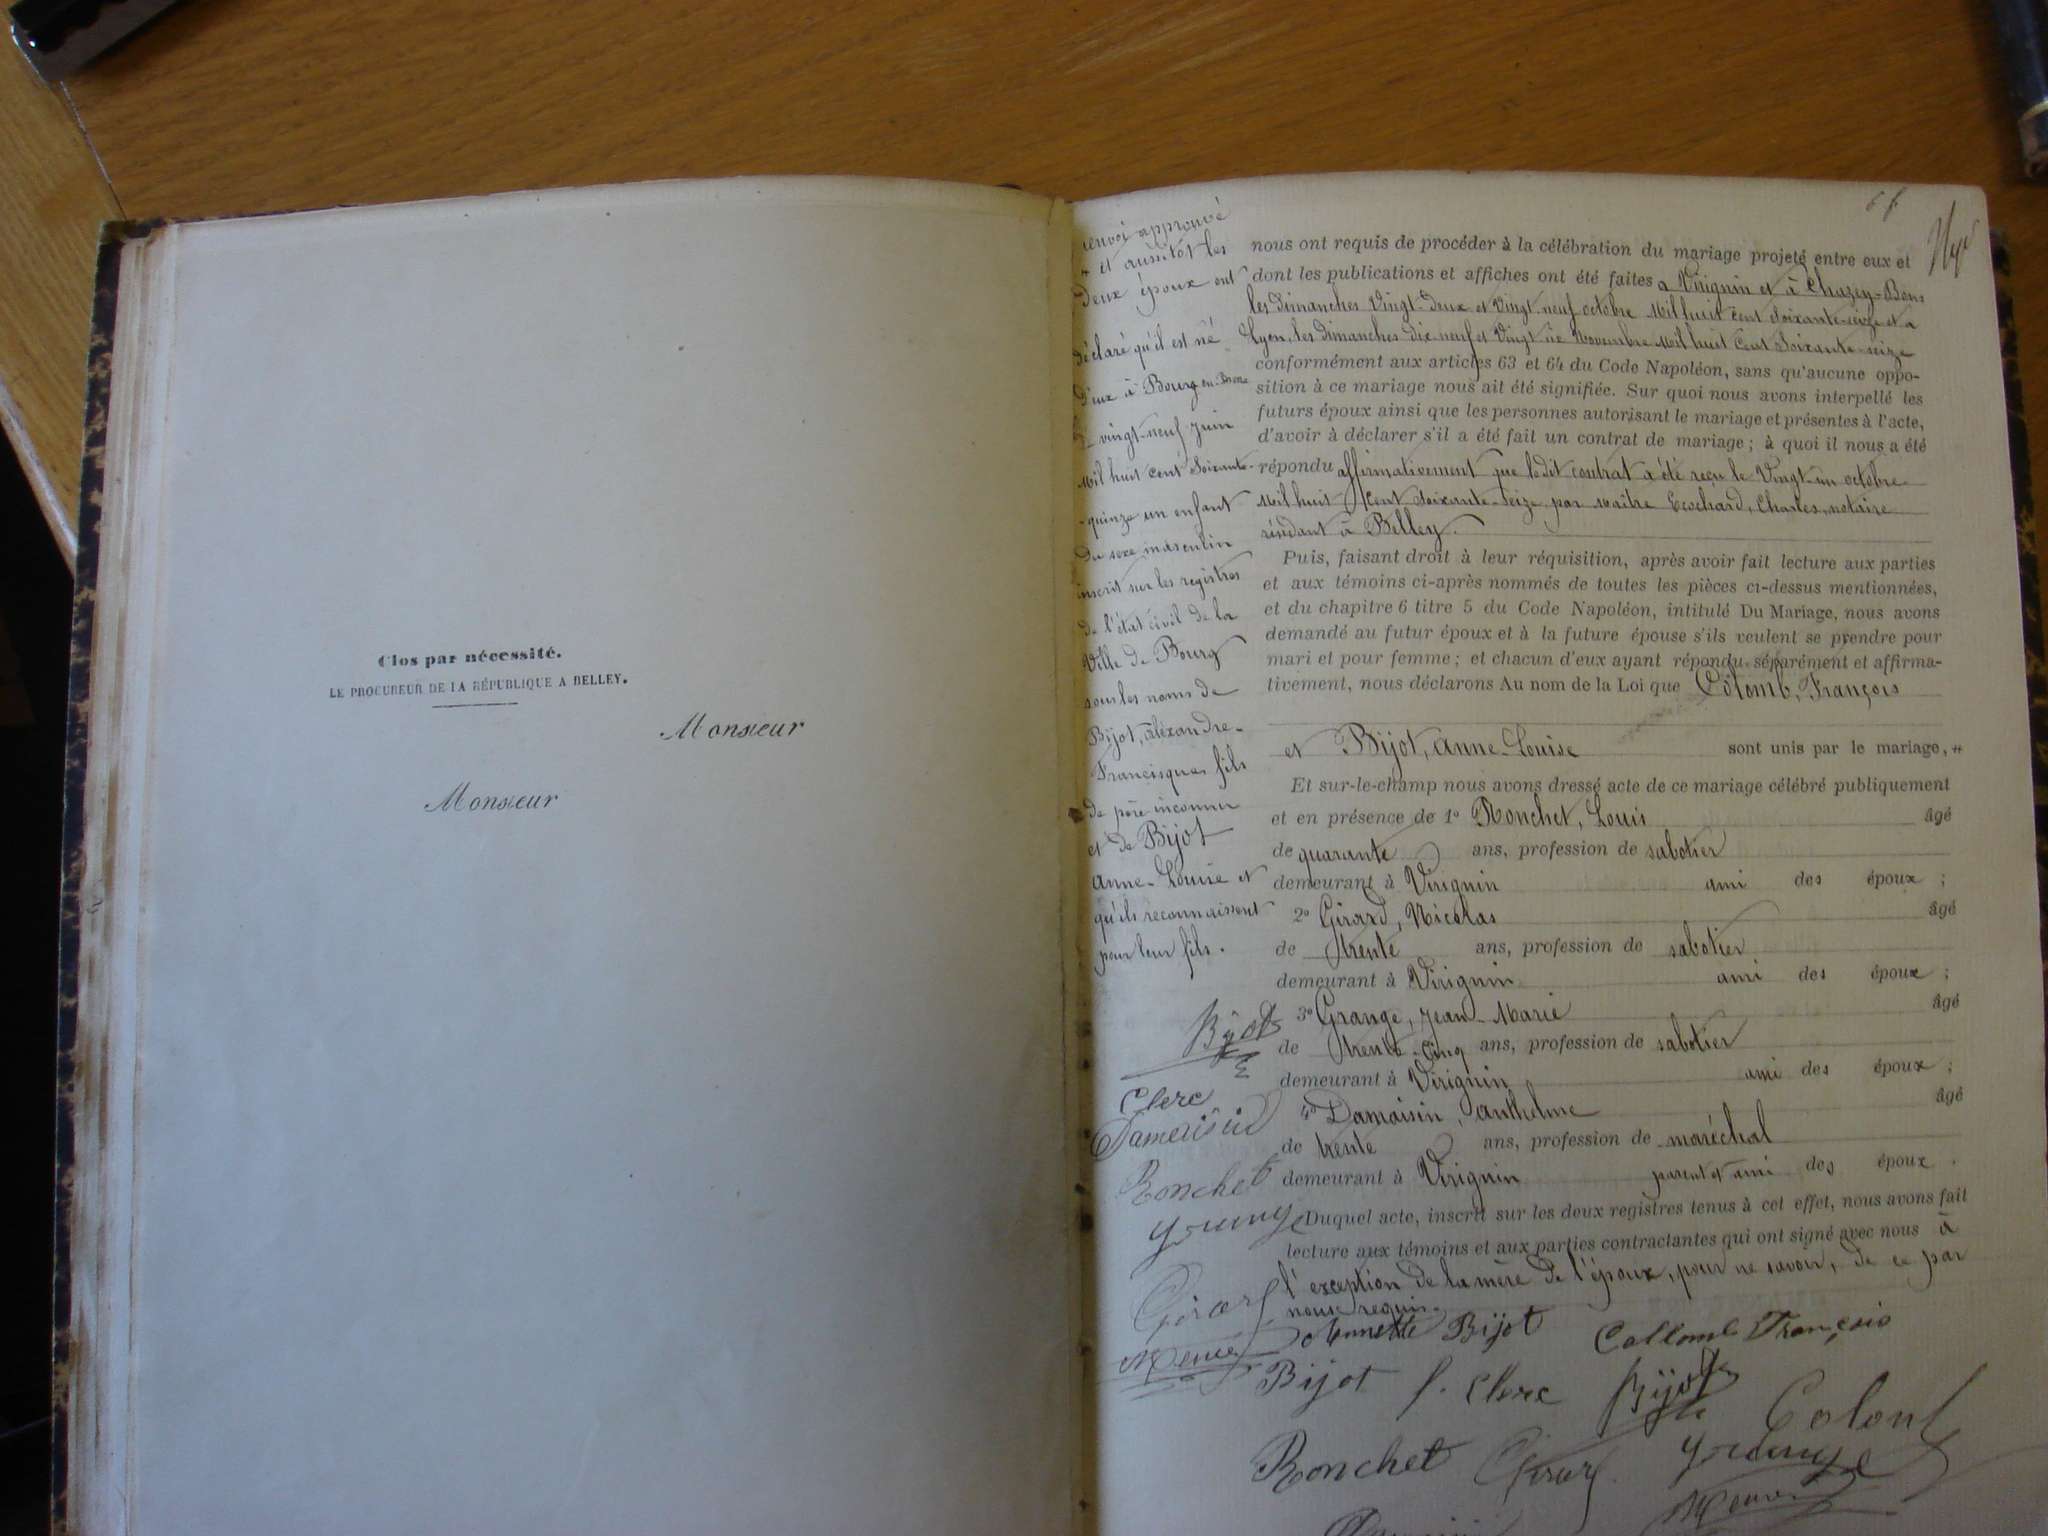 Clos par nécessité.
LE PROCUREUR DE LA RÉPUBLIQUE A BELLEY.
Monsieur
Monsieur
renvoi approuvé
+ et aussitôt les
deux époux ont
déclaré qu'il est né
d'eux à Bourg-en-Bresse
le vingt-neuf juin
Mil huit cent soixante-
-quinze un enfant
du sexe masculin
inscrit sur les registres
de l'état civil de la
Ville de Bourg
sous les noms de
Bijot, alexandre-
Francisque, fils
de père inconnu
et de Bijot
Anne-Louise et
qu'ils reconnaissent
pour leur fils.
Bijot
Clerc
Damaisin
Ronchet
Grange
Girard
nous ont requis de procéder à la célébration du mariage projeté entre eux et
dont les publications et affiches ont été faites a Virignin et à Chazey-Bons
les dimanches Vingt-deux et Vingt-neuf octobre Mil huit cent soixante-seize et a
Lyon, les dimanches dix-neuf et Vingt Novembre Mil huit cent soixante-seize
conformément aux articles 63 et 64 du Code Napoléon, sans qu'aucune oppo-
sition à ce mariage nous ait été signifiée. Sur quoi nous avons interpellé les
futurs époux ainsi que les personnes autorisant le mariage et présentes à l'acte,
d'avoir à déclarer s'il a été fait un contrat de mariage ; à quoi il nous a été
répondu affirmativement que ledit contrat a été reçu le Vingt-un octobre
Mil huit cent soixante-seize par Maître Charles, notaire
résidant à Belley.
Puis, faisant droit à leur réquisition, après avoir fait lecture aux parties
et aux témoins ci-après nommés de toutes les pièces ci-dessus mentionnées,
et du chapitre 6 titre 5 du Code Napoléon, intitulé Du Mariage, nous avons
demandé au futur époux et à la future épouse s'ils veulent se prendre pour
mari et pour femme ; et chacun d'eux ayant répondu séparément et affirma-
tivement, nous déclarons Au nom de la Loi que Colomb, François
et Bijot, Anne-Louise sont unis par le mariage, +
Et sur-le-champ nous avons dressé acte de ce mariage célébré publiquement
et en présence de 1º Ronchet, Louis âgé
de quarante ans, profession de sabotier
demeurant à Virignin ami des époux ;
2º Girard, Nicolas âgé
de trente ans, profession de sabotier
demeurant à Virignin ami des époux ;
3º Grange, Jean-Marie âgé
de trente-cinq ans, profession de sabotier
demeurant à Virignin ami des époux ;
4º Damaisin, Anthelme âgé
de trente ans, profession de maréchal
demeurant à Virignin parent et ami des époux.
Duquel acte, inscrit sur les deux registres tenus à cet effet, nous avons fait
lecture aux témoins et aux parties contractantes qui ont signé avec nous à
l'exception de la mère de l'époux, pour ne savoir, de ce par
nous requis.
Annette Bijot Collomb François
Bijot f. Clerc Bijot Colomb
Ronchet Girard Grange